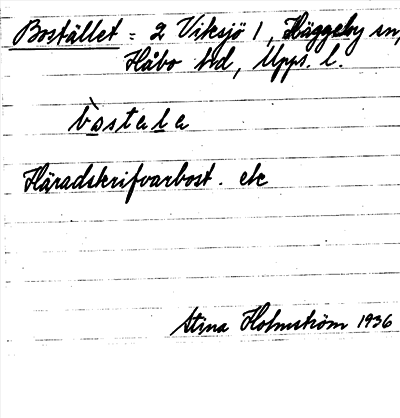 Bostället = 2 Viksjö 1, Häggeby sn,
Håbo hd, Upps. l.
bòstelle
Häradskrifvarbost. etc
Stina Holmström 1936